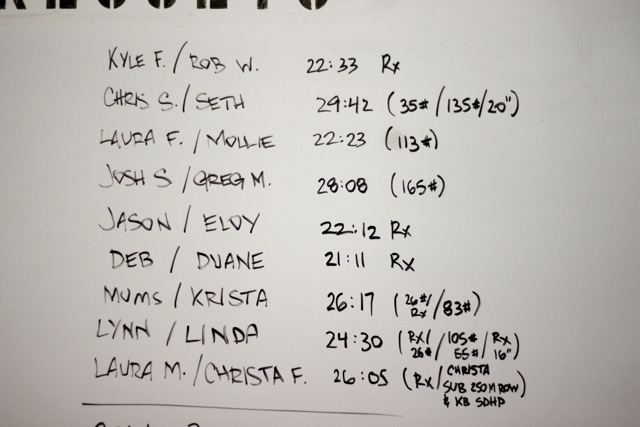 KYLE F. / ROB W. 22:33 Rx
CHRIS S. / SETH 29:42 (35# / 135# / 20")
LAURA F. / MOLLIE 22:23 (113#)
JOSH S / GREG M. 28:08 (165#)
JASON / ELOY 22:12 Rx
DEB / DUANE 21:11 Rx
MUMS / KRISTA 26:17 (26#/Rx / 83#)
LYNN / LINDA 24:30 (Rx/26# / 105#/55# / Rx/16")
LAURA M. / CHRISTA F. 26:05 (Rx / CHRISTA
SUB 250M ROW
& KB SDHP)